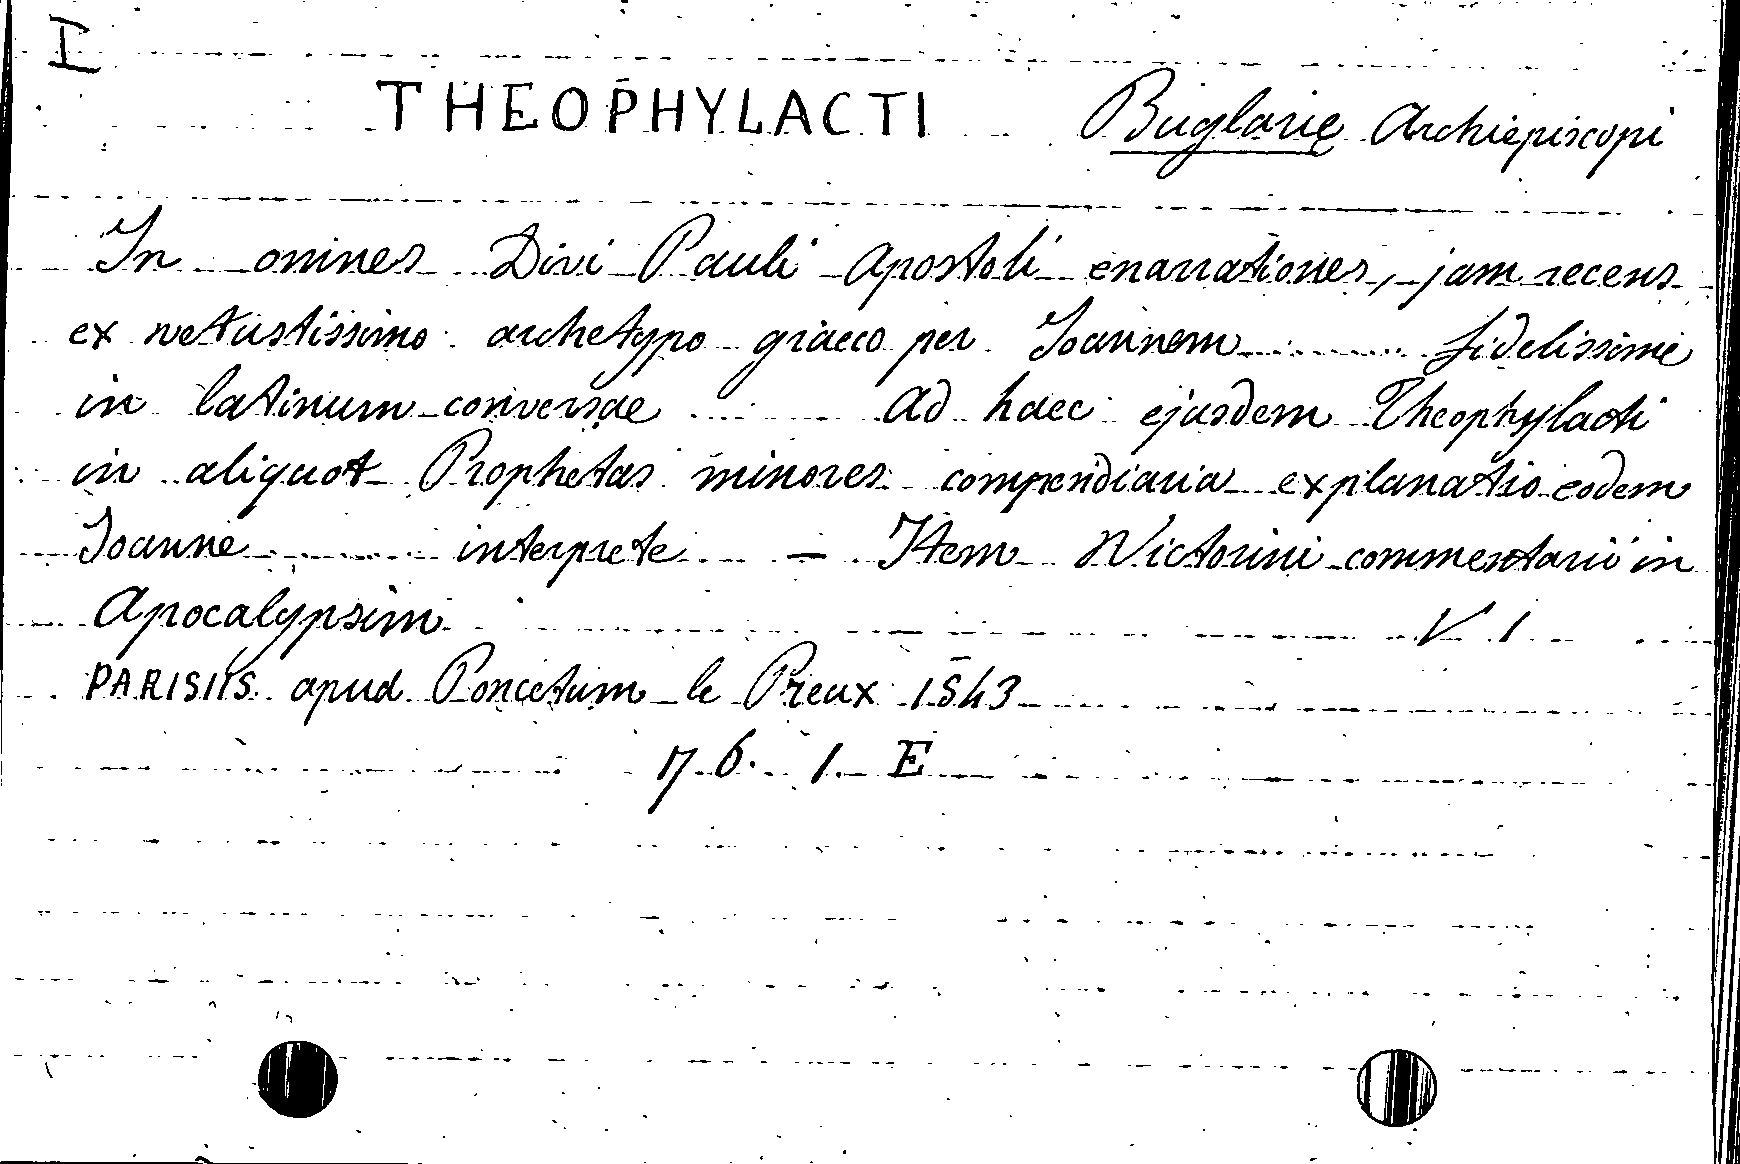 I
THEOPHYLACTI Buglarie Archiepiscopi
In omnes Divi Pauli Apostoli enarrationes, jam recens
ex vetustissimo archetypo graeco per Joannem ........ fidelissime
in latinum conversae ........ Ad haec ejusdem Theophylacti
in aliquot Prophetas minores compendiaria explanatio eodem
Joanne ........ interprete - Item Victorini commentarii in
Apocalypsim V 1
PARISIIS apud Poncetum le Preux 1543
76. 1 E